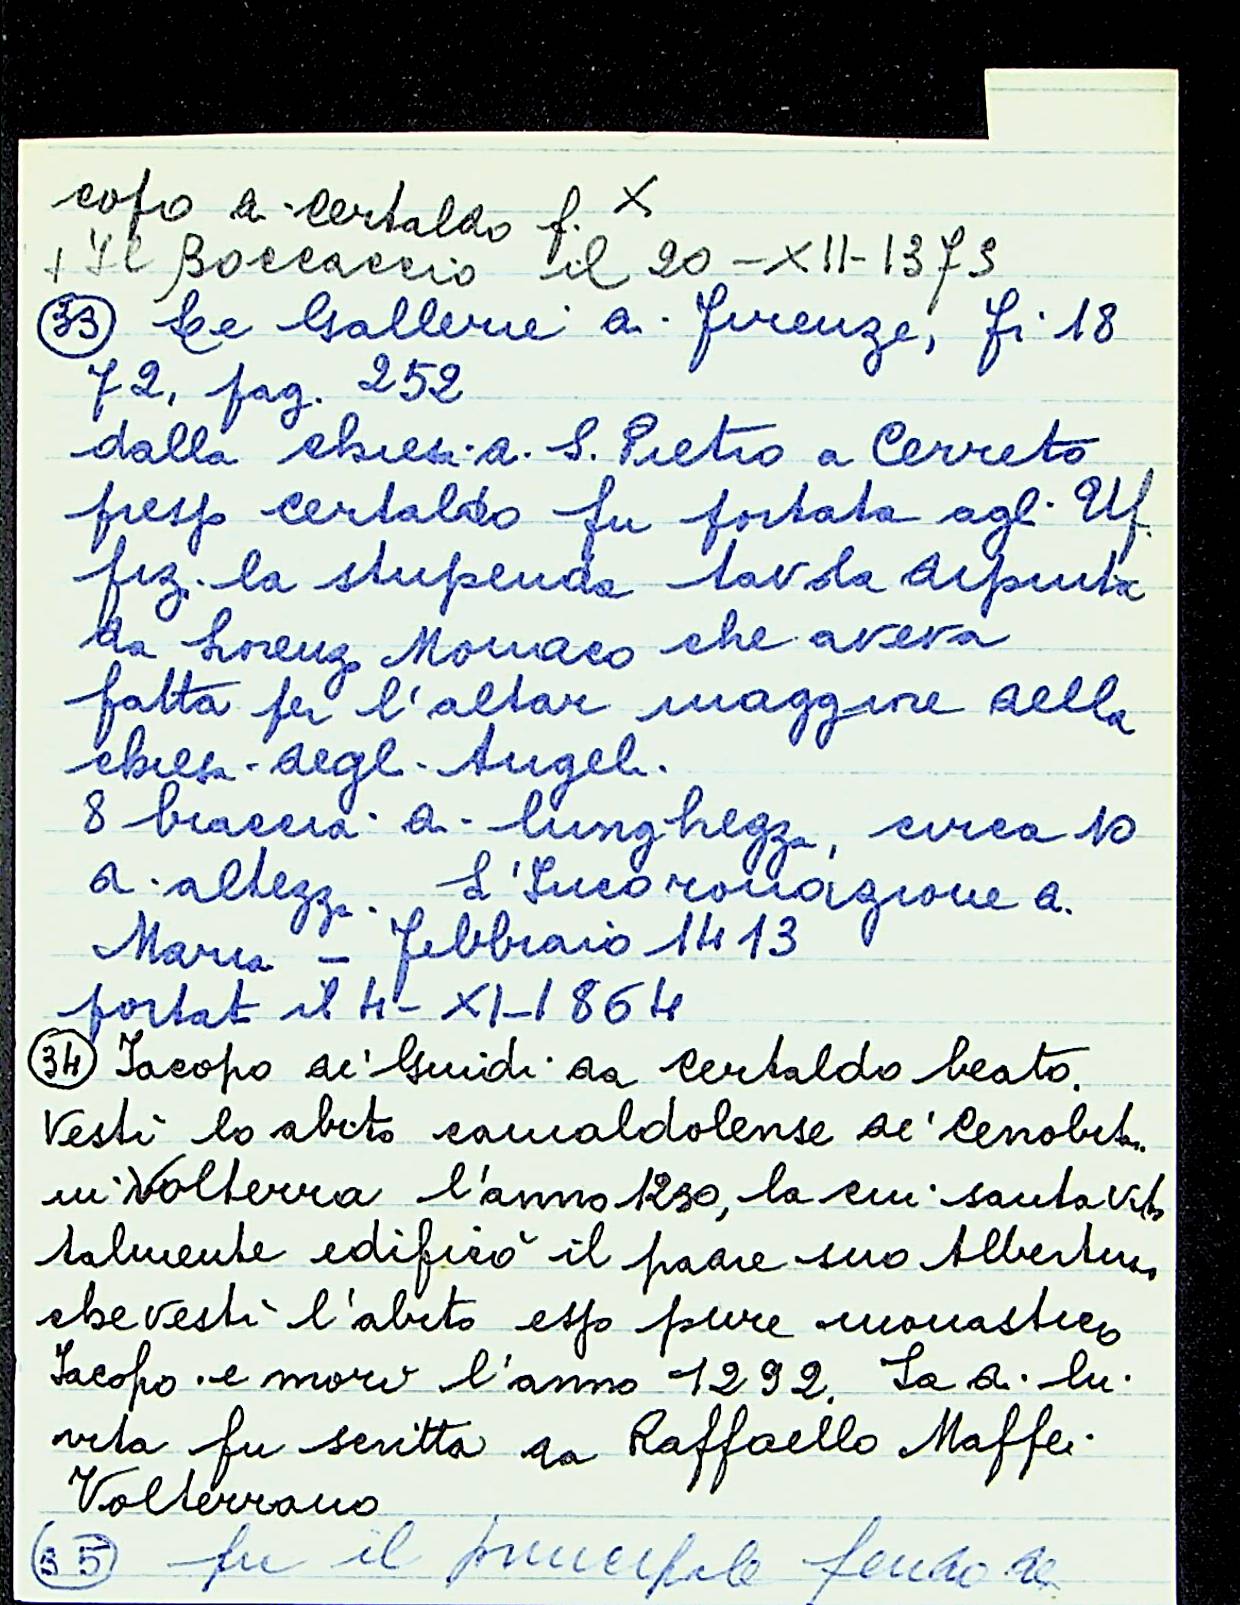 copo di Certaldo f. X
+ Il Boccaccio il 20-XII-1373
(33) Le Gallerie di Firenze, Fi 18
72, pag. 252
dalla chiesa di S. Pietro a Cerreto
presso Certaldo fu portata agli Uf
fizi la stupenda tavola dipinta
da Lorenzo Monaco che aveva
fatta per l'altar maggiore della
chiesa degli Angeli.
8 braccia di lunghezza, circa 10
di altezza. L'Incoronazione di
Maria - Febbraio 1413
portat il 4-XI-1864
(34) Jacopo de' Guidi da Certaldo beato.
Vestì lo abito camaldolense de' Cenobiti
in Volterra l'anno 1230, la cui santa vita
talmente edificò il padre suo Albertino
che vestì l'abito esso pure monastico
Jacopo e morì l'anno 1292. La di lui
vita fu scritta da Raffaello Maffei
Volterrano
(35) fu il principale feudo de